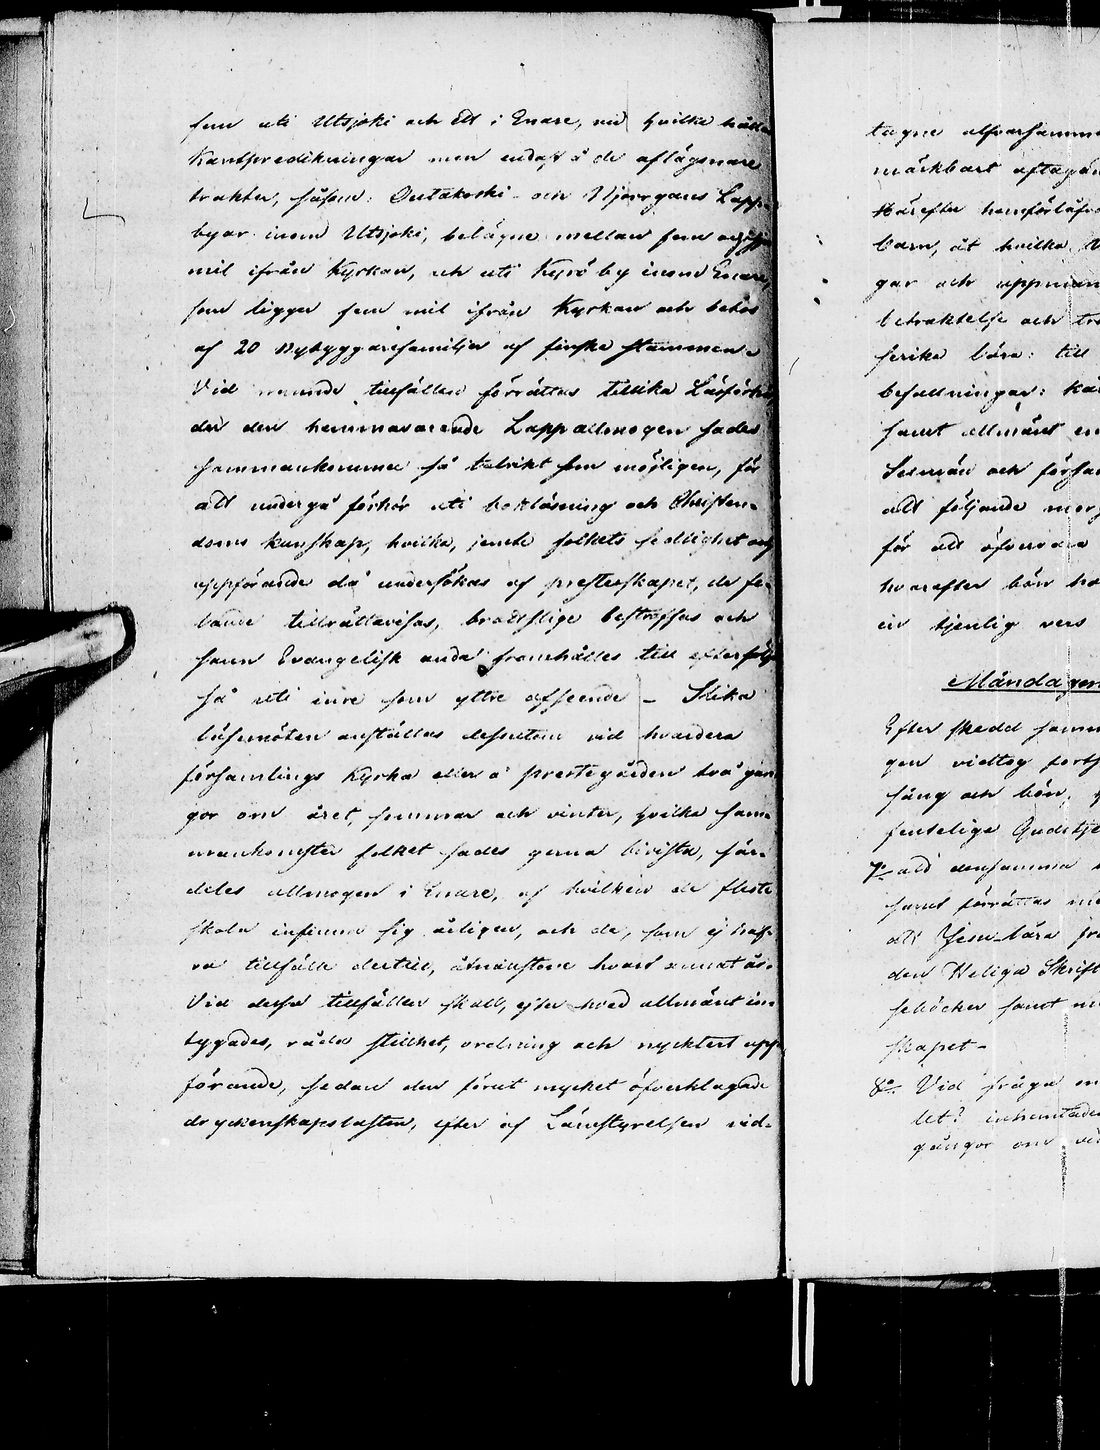 fem uti Utsjoki och Ett i Enare, vid hvilka hålla
Kantpredikningar men endast å de aflägsnare
trakter, såsom: Outakoski- och Njuorgams Lapp-
byar inom Utsjoki, belägne mellan fem och
mil ifrån Kyrkan, och uti Kyrö by inom Enare,
som ligger fem mil ifrån Kyrkan och bebos
af 20 Nybyggarefamiljer af finska stammen.
Vid tillfällen förrättas tillika Läsförhör
der den hemmavarande Lappallmogen sades
sammankomma så talrikt som möjligen, för
att undergå förhör uti bokläsning och Christen-
doms kunskap, hvilka, jemte folkets sedlighet och
uppförande då undersökas af presterskapet, de fe-
lande tillrättavisas, brottslige bestraffas och
sann Evangelisk anda framhålles till efterföljd
så uti inre som yttre afseende – Slika
läsemöten anställas dessutom vid hvardera
församlings Kyrka eller å prestegården två gån-
gor om året, sommar och vinter, hvilka sam-
mankomster folket sades gerna bivista, sär-
deles allmogen i Enare, af hvilken de fleste
skola infinna sig årligen, och de, som ej haf-
va tillfälle dertill, åtminstone hvart annat år.
Vid dessa tillfällen skall, efter hvad allmänt in-
tygades, råda stillhet, ordning och nycktert upp-
förande, sedan den förut mycket öfverklagade
dryckenskapslasten, efter af Länestyrelsen vid-
tagne alfvarsamma
märkbart aftagit
Härefter hemförlofva
barn, åt hvilka
gar och uppman
betraktelse och
ferika lära: till
befallningar:
samt allmänt en
Selmän och försam
att följande morg
för att öfvervara
hvarefter bön
en tjenlig vers
Måndagen
Efter skedd samm
gen vidtog forts
sång och bön,
fentelige Gudstje
7o att densamma
samt förrättas
att Jesu lära
den Heliga Skrift
seböcker samt
skapet –
8o Vid fråga
let? inhemtades
gångor om